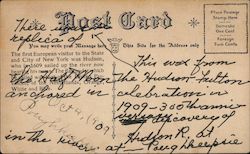 Post Card
Place Postage
Stamp Here
Domestic
One Cent
Foreign
Two Cents
You may write your Message here
This Side for the Address only
The first European visitor to the State
and City of New York was Hudson,
who in 1609 sailed up the river now
replica of
the Half Moon
anchored in
in the river
This was from
The Hudson Fulton
celebration in
1909 - 300th anniv
discovery of
Hudson R. at
Poughkeepsie